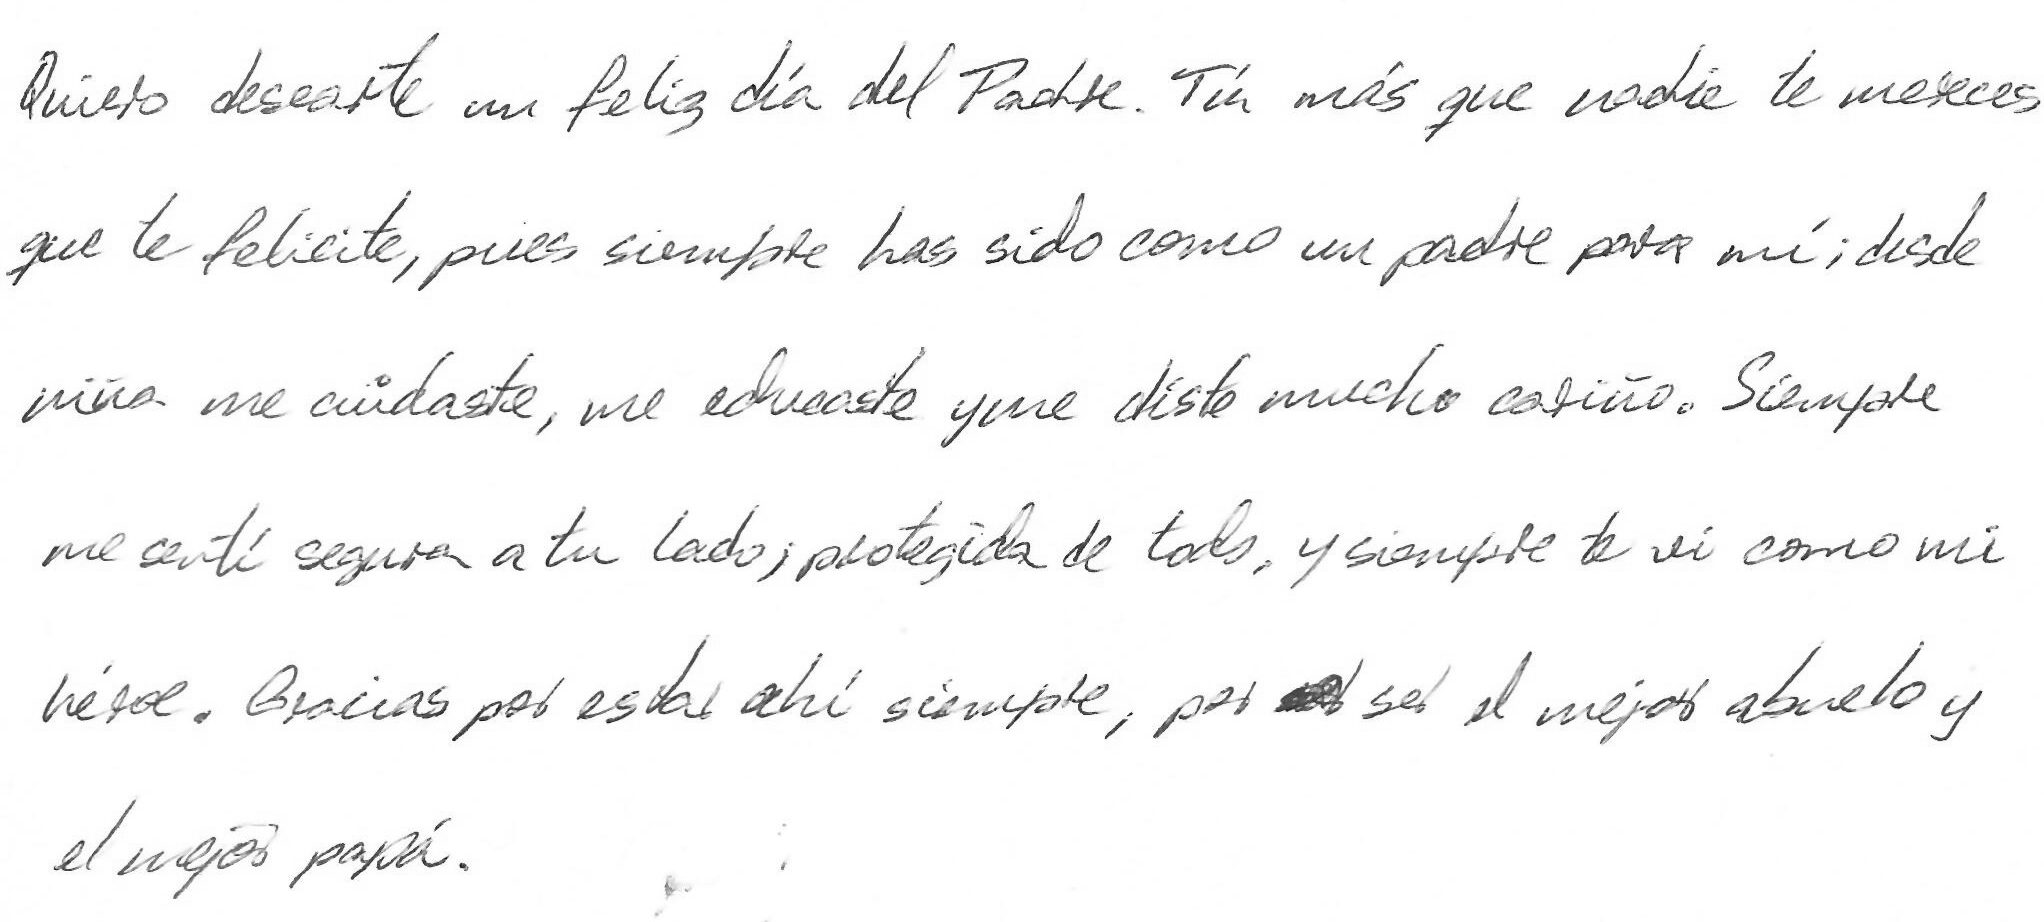 Quiero desearte un feliz día del Padre. Tú más que nadie te mereces
que te felicite, pues siempre has sido como un padre para mí; desde
niña me cuidaste, me educaste y me diste mucho cariño. Siempre
me sentí segura a tu lado; protegida de todo, y siempre te vi como mi
héroe. Gracias por estar ahí siempre, por ser el mejor abuelo y
el mejor papá.